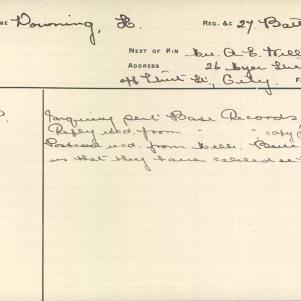 ME Downing, H. REG. &c 27 Batt
NEXT OF KIN Mr A. E. Will
ADDRESS 26 Myer
off Flint St, City. F
D. Inquiry sent Base Records
Reply recd. from " " copy
Postcard recd. from Melb. Base
us that they have cabled